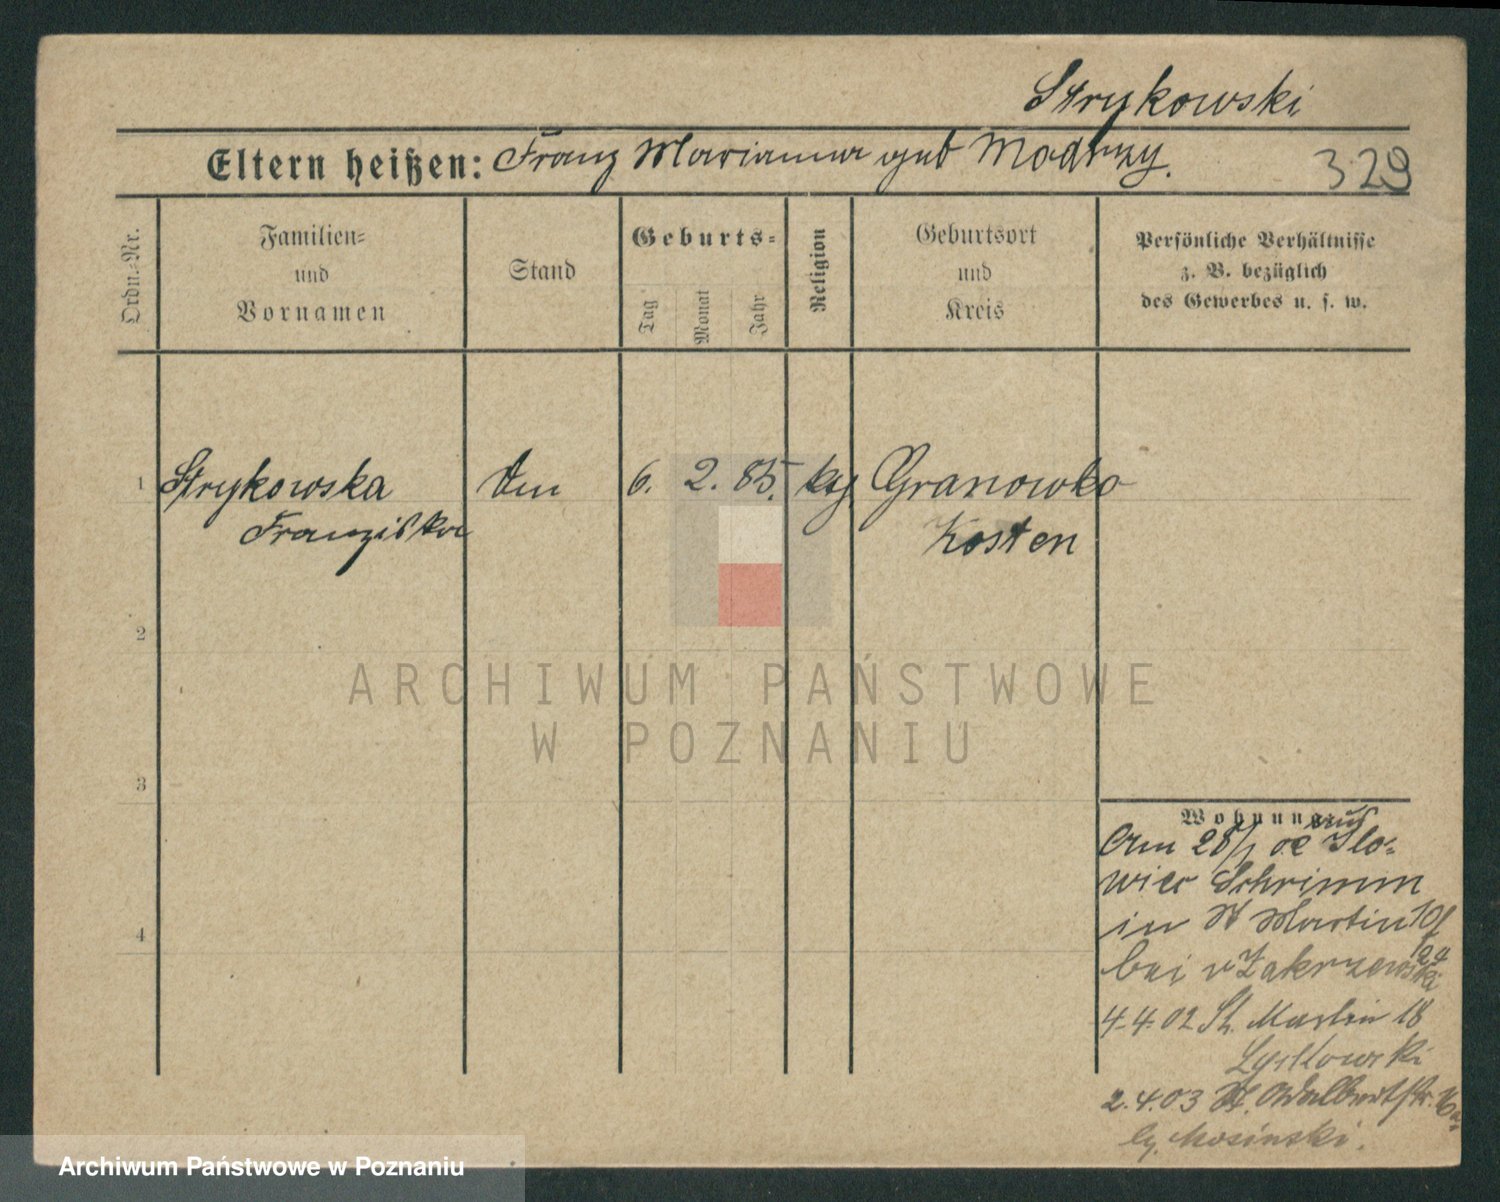 Strykowski
Eltern heißen: Franz Marianna geb Modrzy.
329
Ordn.-Nr.
Familien-
und
Vornamen
Stand
Geburts-
Tag
Monat
Jahr
Religion
Geburtsort
und
Kreis
Persönliche Verhältnisse
z. B. bezüglich
des Gewerbes u. s. w.
1 Strykowska 6. 2. 85. Granowko
Franziska Kosten
2
ARCHIWUM PAŃSTWOWE
W POZNANIU
3
4
Wohnung
aus
28/1 Slo-
wiec Schrimm
in St Martin
bei v Zakrzewski
4.4.02 St. Martin 18
2.4.03 St. Adalbertstr.
Mosinski.
Archiwum Państwowe w Poznaniu